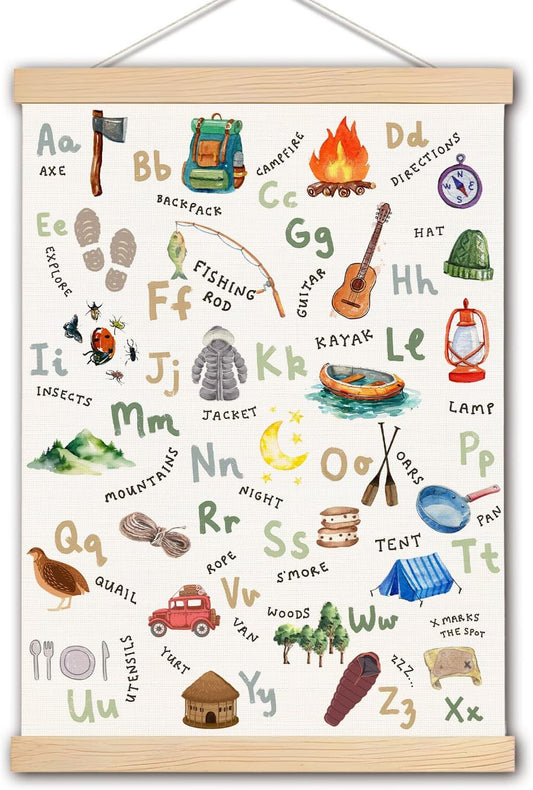 Aa
AXE
Bb
BACKPACK
CAMPFIRE
Cc
Dd
DIRECTIONS
N
E
S
W
Ee
EXPLORE
FISHING
ROD
Ff
Gg
GUITAR
HAT
Hh
Ii
INSECTS
Jj
JACKET
Kk
KAYAK
Ll
LAMP
Mm
MOUNTAINS
Nn
NIGHT
Oo
OARS
Pp
PAN
Qq
QUAIL
Rr
ROPE
Ss
S'MORE
TENT
Tt
Uu
UTENSILS
Vv
VAN
WOODS
Ww
X MARKS
THE SPOT
x
Xx
YURT
Yy
ZZZ...
Zz